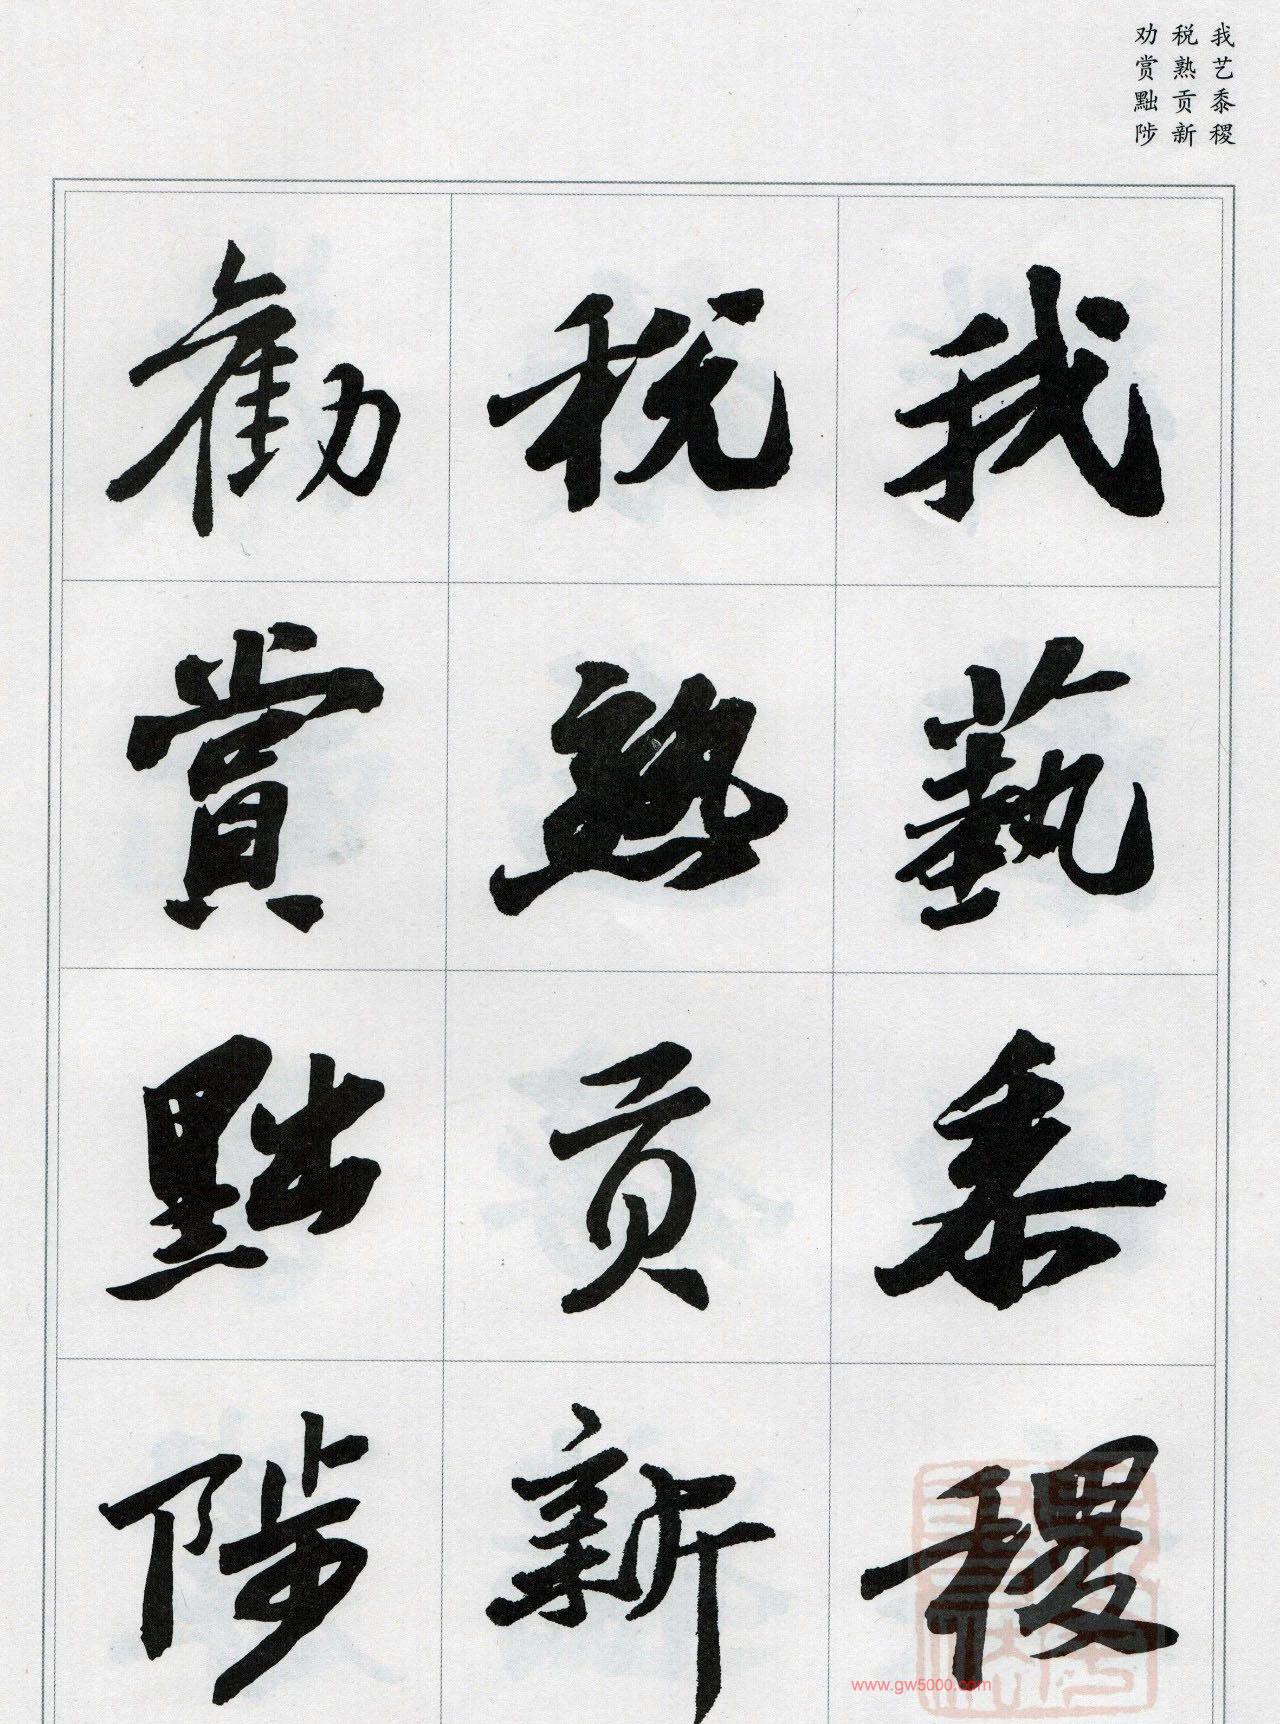 我艺黍稷
税熟贡新
劝赏黜陟
我藝黍稷
税熟贡新
勸賞黜陟
www.gw5000.com